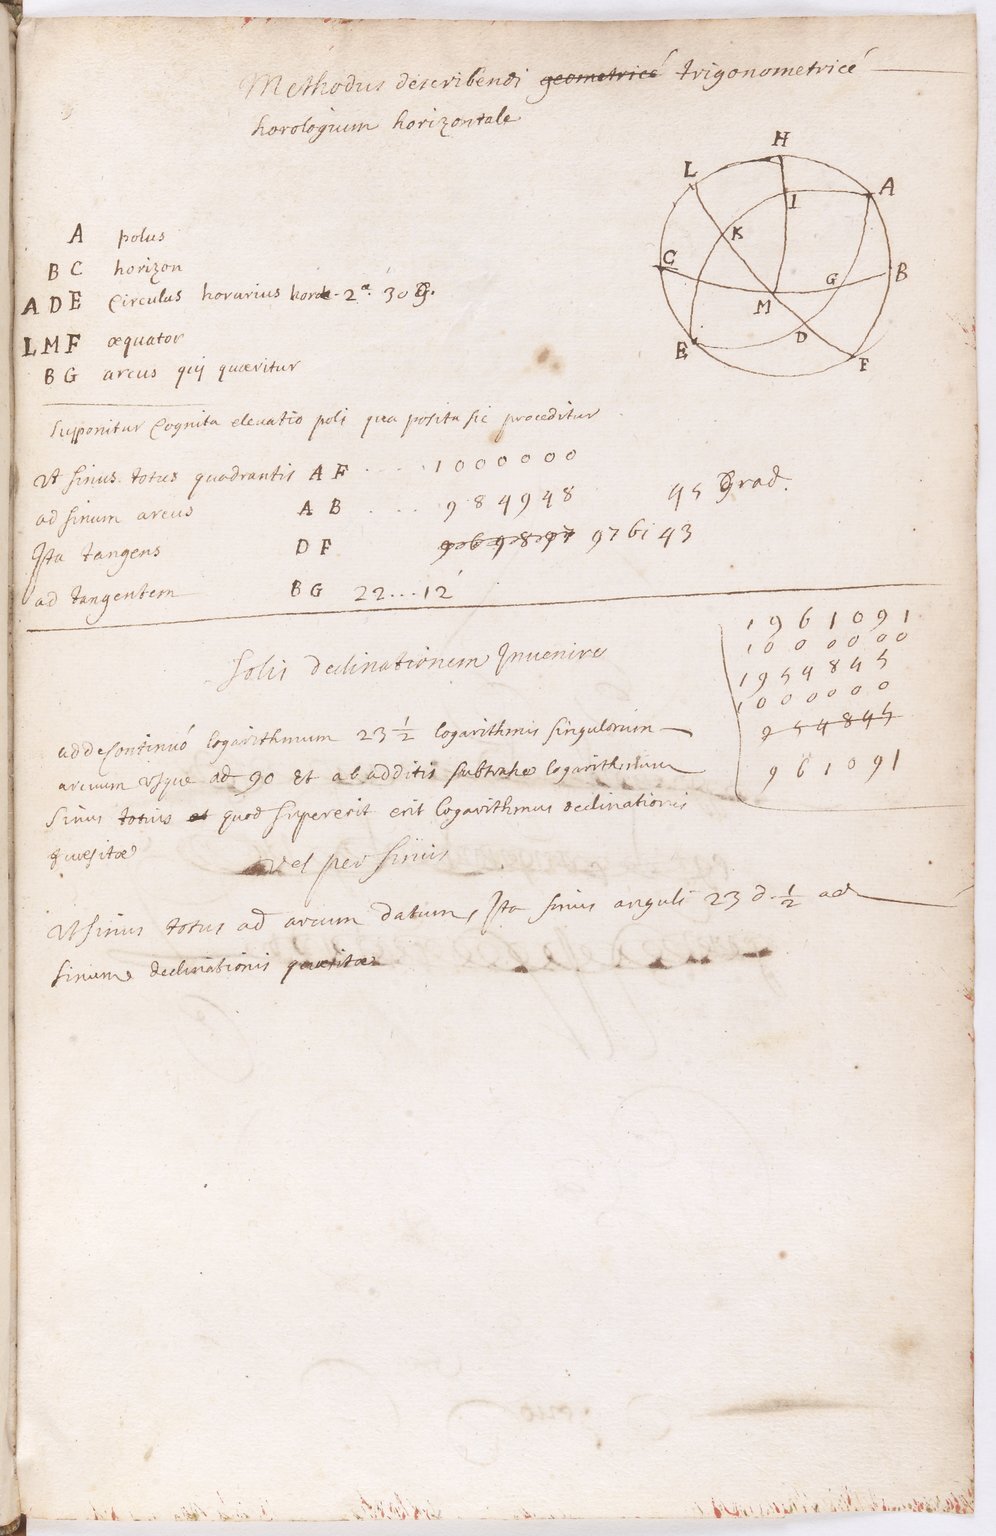 Methodus describendi geometricé trigonometricé
horologium horizontale
H
L
A
I
K
C
G
B
M
D
E
F
A polus
B C horizon
A D E Circulus horarius horæ 2ª. 30 G.
L M F æquator
B G arcus qui quæritur
Supponitur Cognita eleuatio poli qua posita sic proceditur
Vt sinus totus quadrantis A F . . . . . 1000000
ad sinum arcus A B . . . . 984948 45 Grad.
Ita tangens D F 969897 976143
ad tangentem B G 22....12
Solis declinationem Inuenire
1961091
1000000
1954845
1000000
954845
961091
adde Continuó logarithmum 23 1/2 logarithmis singulorum
arcuum vsque ad 90 Et ab additis subtrahe logarithmum
Sinus totius et quod supererit erit logarithmus declinationis
quæsitæ
vel per sinus
Vt sinus totus ad arcum datum, Ita sinus anguli 23 d. 1/2 ad
sinum declinationis quæsitæ